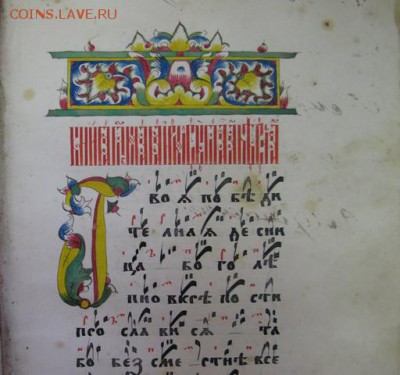 COINS.LAVE.RU
Т во ѧ по бѣ ди
те лна ѧ де сни
ца бо го лѣ
пно вкрѣ по сти
про сла ви сѧ та
бо без сме ртне все